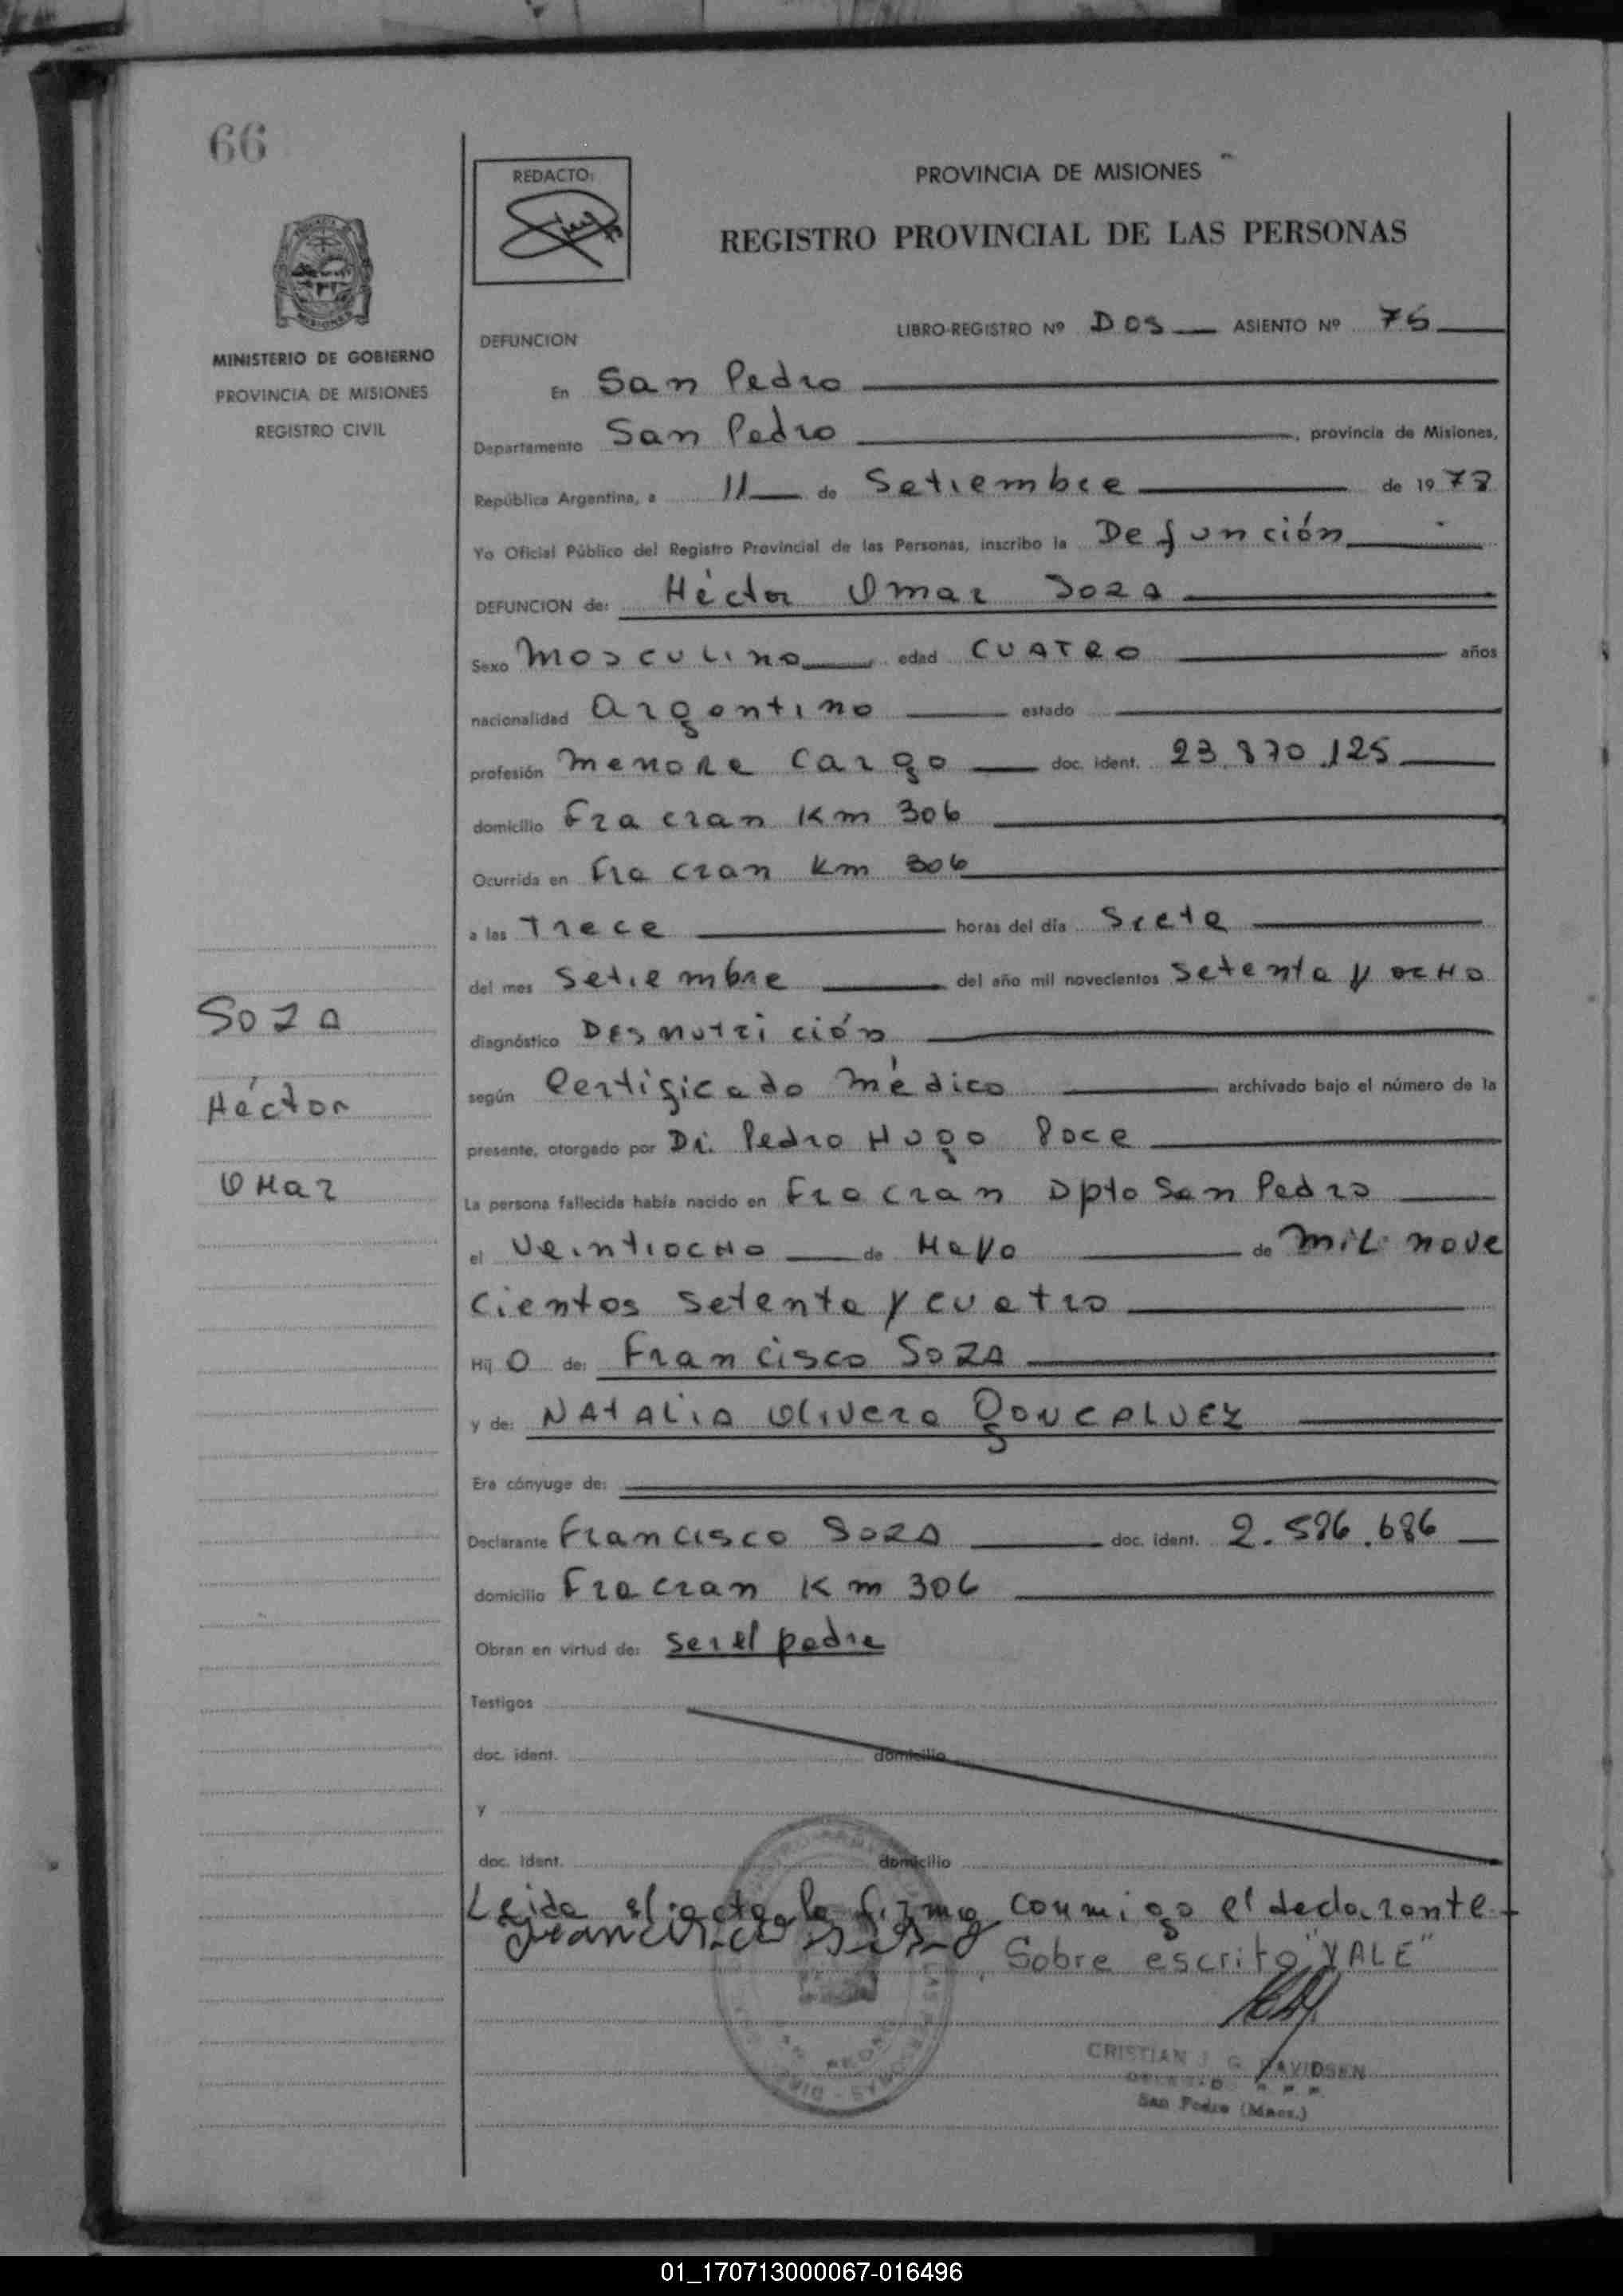 66
REDACTO:
PROVINCIA DE MISIONES
REGISTRO PROVINCIAL DE LAS PERSONAS
MISIONES
MINISTERIO DE GOBIERNO
PROVINCIA DE MISIONES
REGISTRO CIVIL
DEFUNCION
LIBRO-REGISTRO Nº Dos ASIENTO Nº 75
En San Pedro
Departamento San Pedro, provincia de Misiones,
República Argentina, a 11 de Setiembre de 1978
Yo Oficial Público del Registro Provincial de las Personas, inscribo la Defunción
DEFUNCION de: Héctor Omar Soza
Sexo Masculino edad CUATRO años
nacionalidad Argentino estado
profesión menor a cargo doc. ident. 23.870.125
domicilio Fracran Km 306
Ocurrida en Fracran Km 306
a las Trece horas del día Siete
del mes Setiembre del año mil novecientos setenta y ocho
diagnóstico Desnutrición
según Certificado Médico archivado bajo el número de la
presente, otorgado por Dr. Pedro Hugo Poce
La persona fallecida había nacido en Fracran Dpto San Pedro
el Veintiocho de Mayo de mil nove
cientos setenta y cuatro
Hij o de: Francisco Soza
y de: Natalia Olivera Goncalvez
Era cónyuge de:
Declarante Francisco Soza doc. ident. 2.586.686
domicilio Fracran Km 306
Obran en virtud de: ser el padre
Testigos
doc. ident. domicilio
y
doc. ident. domicilio
Leida el acta la firma conmigo el declarante
Francisco Soza, Sobre escrito "VALE"
CRISTIAN J. G. DAVIDSEN
San Pedro (Mnes.)
Soza
Héctor
Omar
01_170713000067-016496